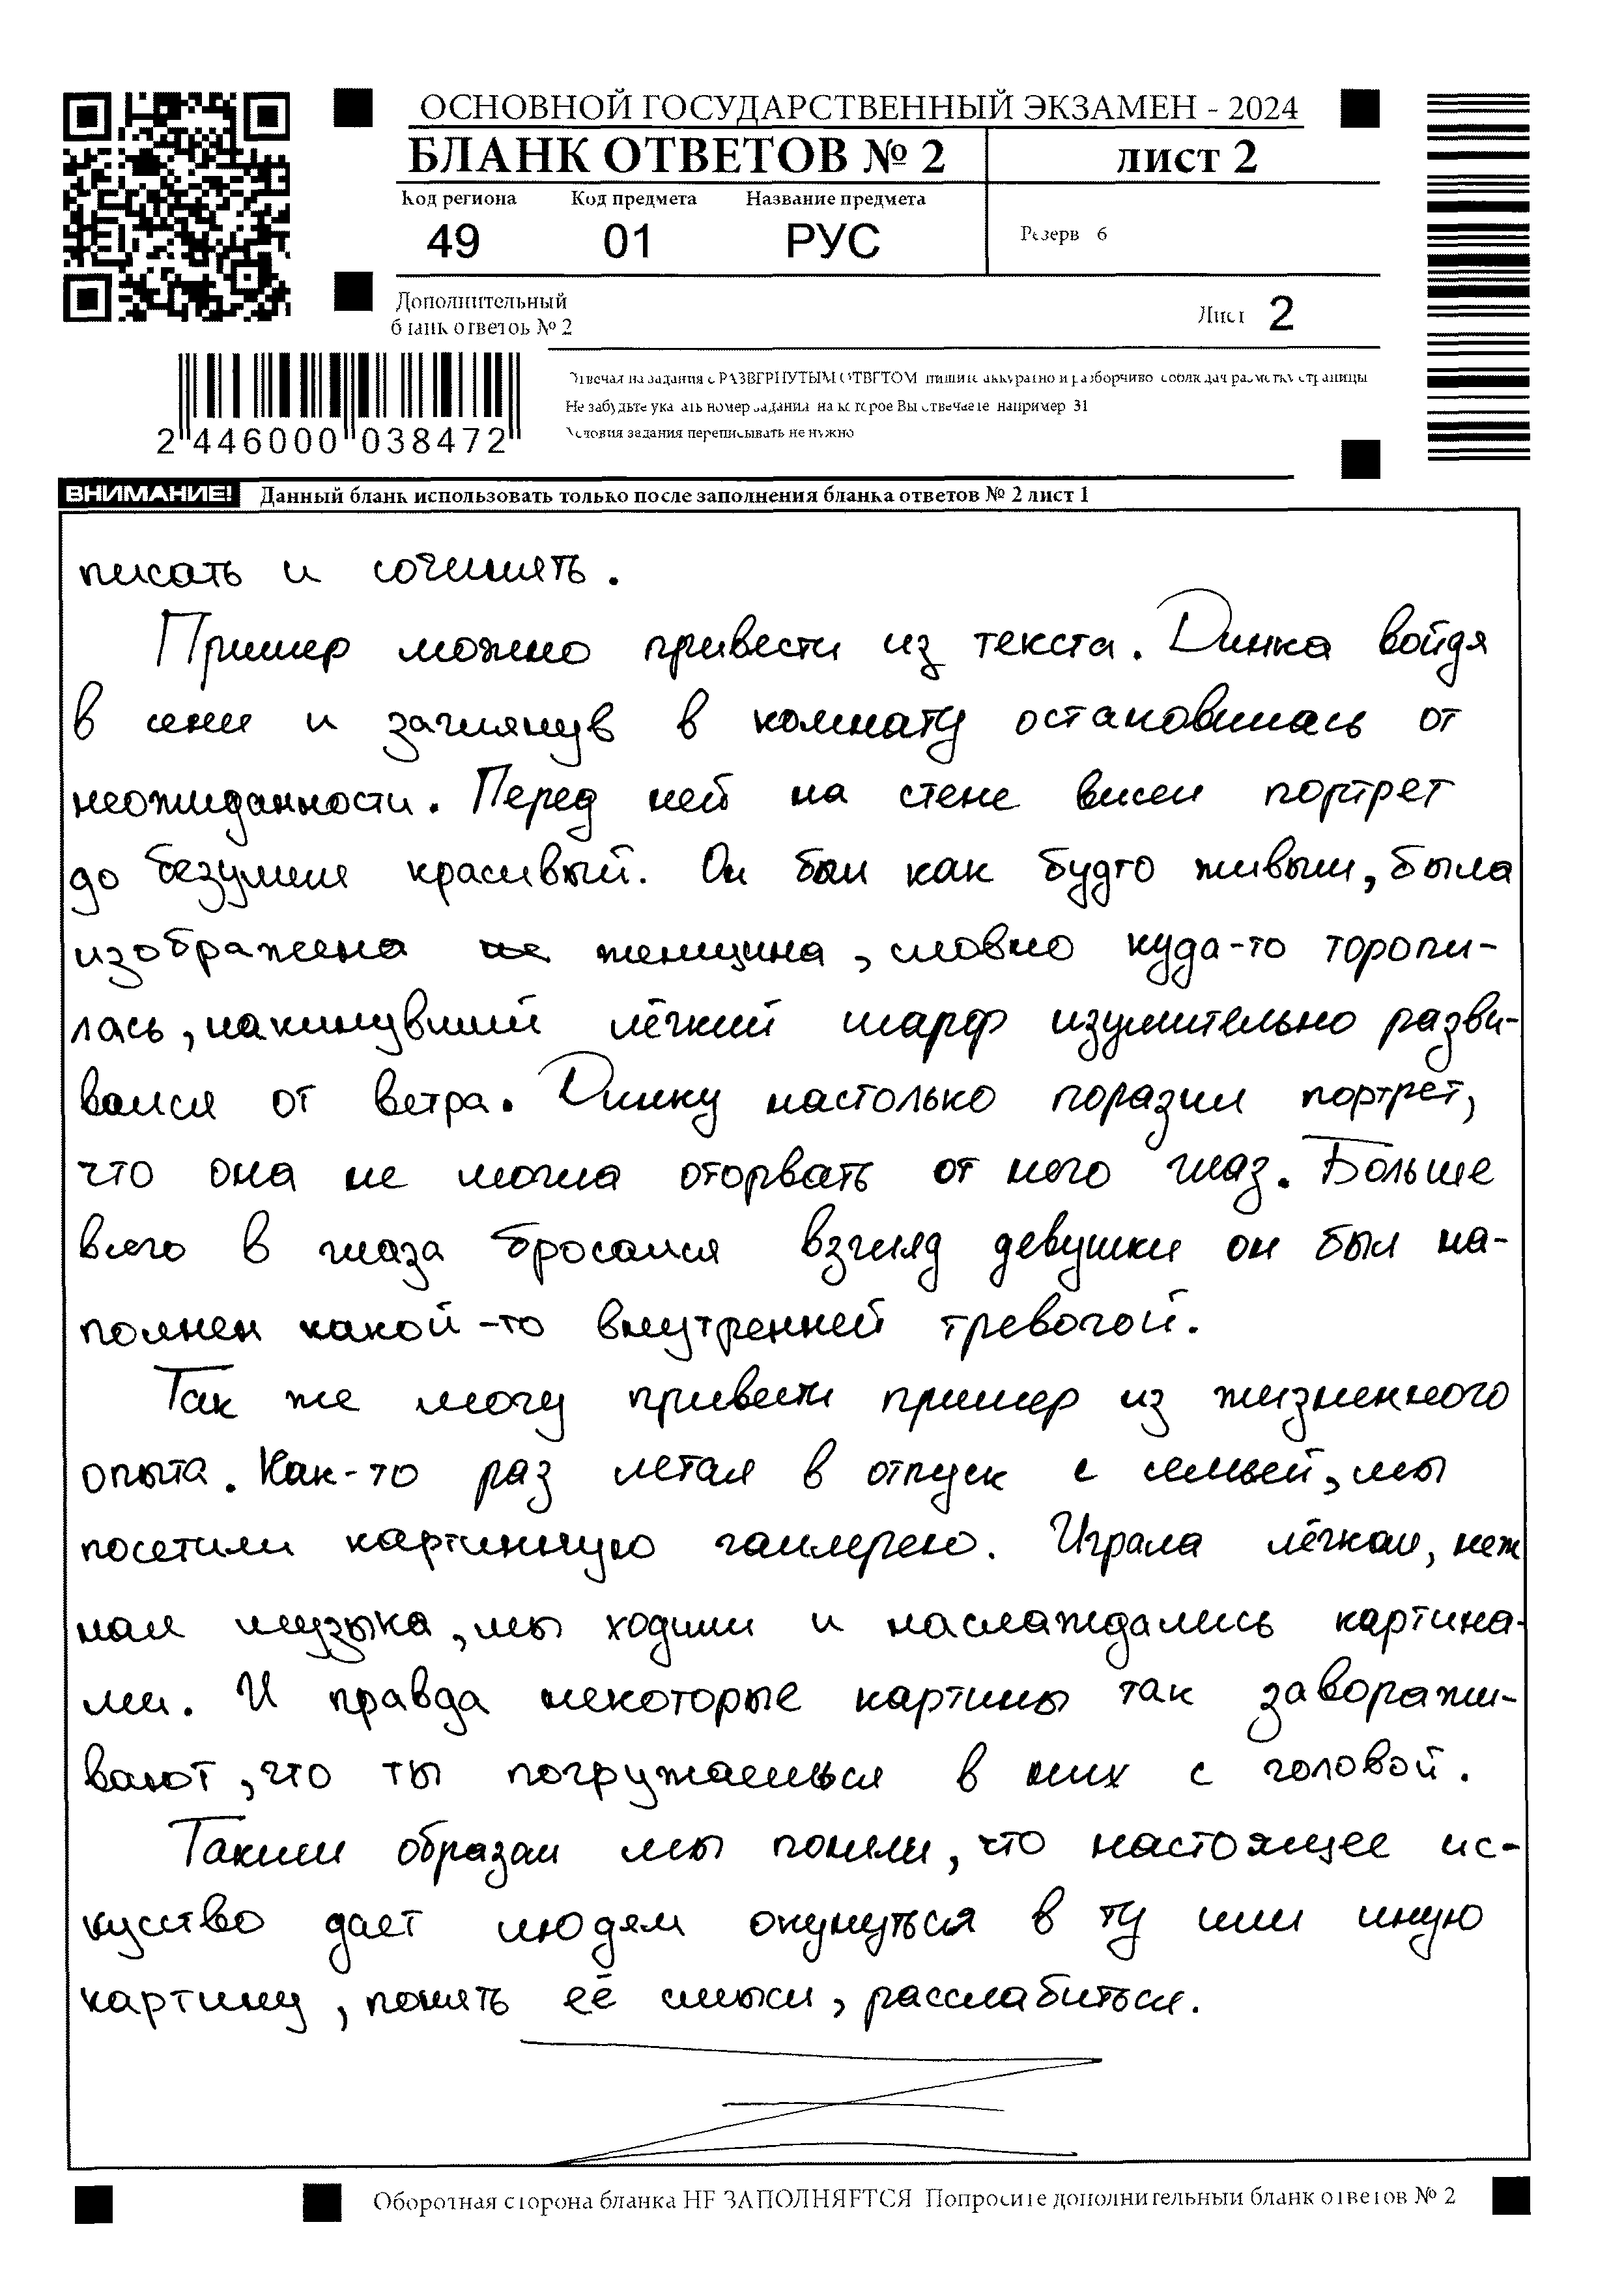 ОСНОВНОЙ ГОСУДАРСТВЕННЫЙ ЭКЗАМЕН - 2024
БЛАНК ОТВЕТОВ № 2
лист 2
Код региона Код предмета Название предмета
49 01 РУС
Резерв 6
Дополнительный
бланк ответов № 2
Лист 2
Отвечая на задания с РАЗВЕРНУТЫМ ОТВЕТОМ пишите аккуратно и разборчиво соблюдая разметку страницы
Не забудьте указать номер задания на которое Вы отвечаете например 31
Условия задания переписывать не нужно
2 446000 038472
ВНИМАНИЕ! Данный бланк использовать только после заполнения бланка ответов № 2 лист 1
писать и сочинять.
Пример можно привести из текста. Динка войдя
в сени и заглянув в комнату остановилась от
неожиданности. Перед ней на стене висел портрет
до безумия красивый. Он был как будто живым, была
изображена женщина, словно куда-то торопи-
лась, накинувший лёгкий шарф изумительно разви-
вался от ветра. Динку настолько поразил портрет,
что она не могла оторвать от него глаз. Больше
всего в глаза бросался взгляд девушки он был на-
полнен какой-то внутренней тревогой.
Так же могу привести пример из жизненного
опыта. Как-то раз летая в отпуск с семьей, мы
посетили картинную галлерею. Играла лёгкая, неж
ная музыка, мы ходили и наслаждались картина-
ми. И правда некоторые картины так заворажи-
вают, что ты погружаешься в них с головой.
Таким образом мы поняли, что настоящее ис-
кусство дает людям окунуться в ту или иную
картину, понять её смысл, расслабиться.
Оборотная сторона бланка НЕ ЗАПОЛНЯЕТСЯ Попросите дополнительный бланк ответов № 2